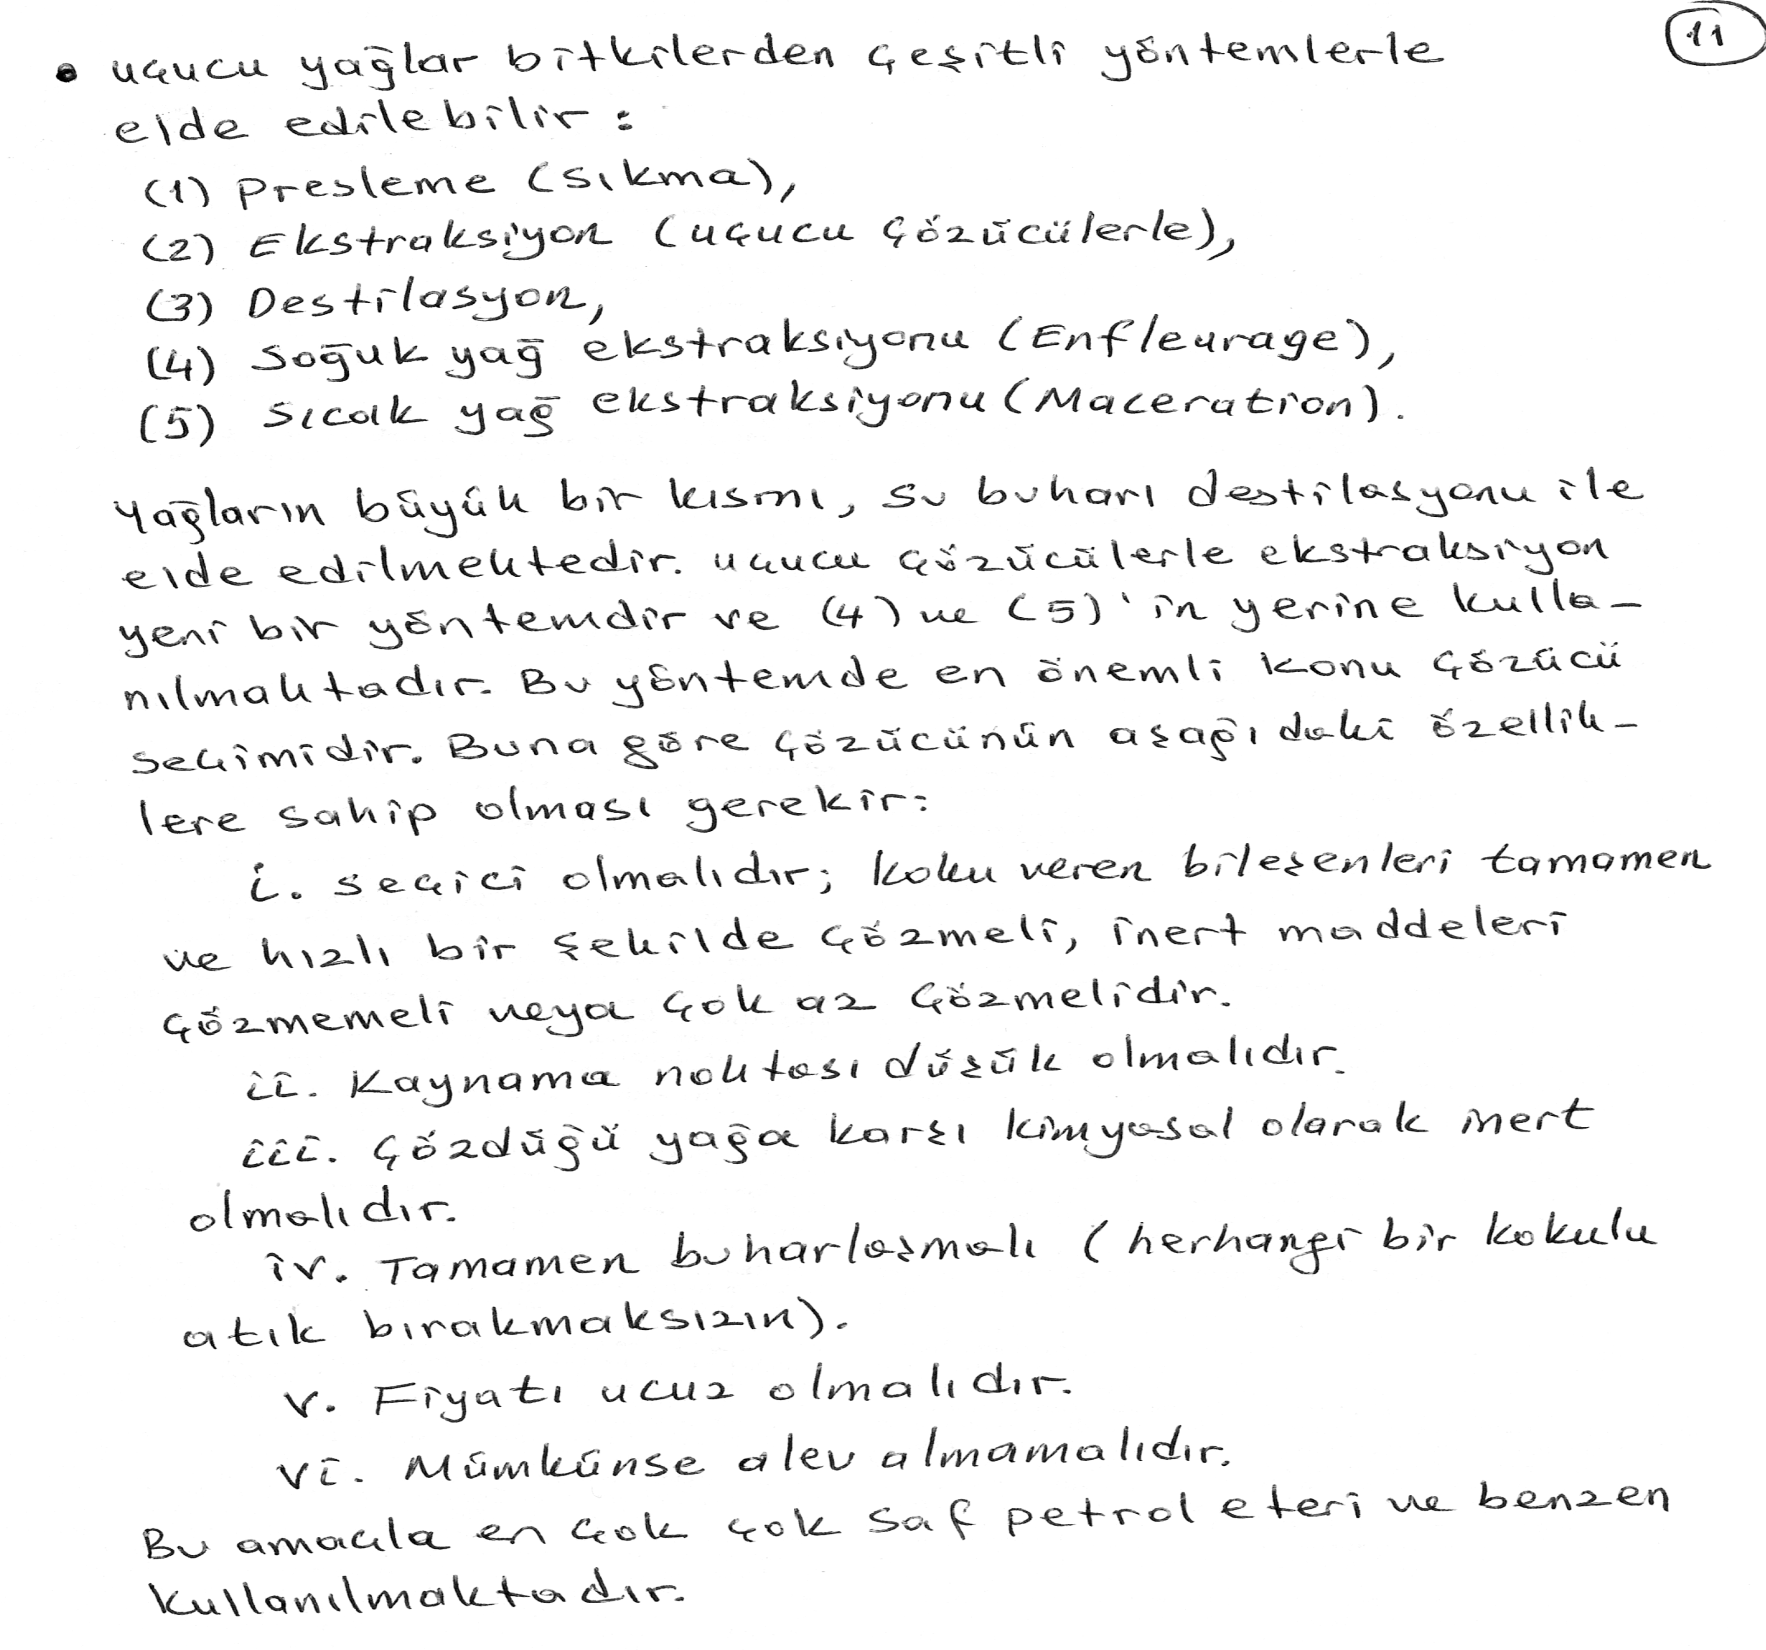 11
• uçucu yağlar bitkilerden çeşitli yöntemlerle
elde edilebilir:
(1) Presleme (sıkma),
(2) Ekstraksiyon (uçucu çözücülerle),
(3) Destilasyon,
(4) Soğuk yağ ekstraksiyonu (Enfleurage),
(5) Sıcak yağ ekstraksiyonu (Maceration).
Yağların büyük bir kısmı, su buharı destilasyonu ile
elde edilmektedir. uçucu çözücülerle ekstraksiyon
yeni bir yöntemdir ve (4) ve (5)'in yerine kulla-
nılmaktadır. Bu yöntemde en önemli konu çözücü
seçimidir. Buna göre çözücünün aşağıdaki özellik-
lere sahip olması gerekir:
i. seçici olmalıdır; koku veren bileşenleri tamamen
ve hızlı bir şekilde çözmeli, inert maddeleri
çözmemeli veya çok az çözmelidir.
ii. Kaynama noktası düşük olmalıdır.
iii. Çözdüğü yağa karşı kimyasal olarak inert
olmalıdır.
iv. Tamamen buharlaşmalı (herhangi bir kokulu
atık bırakmaksızın).
v. Fiyatı ucuz olmalıdır.
vi. Mümkünse alev almamalıdır.
Bu amaçla en çok çok saf petrol eteri ve benzen
kullanılmaktadır.